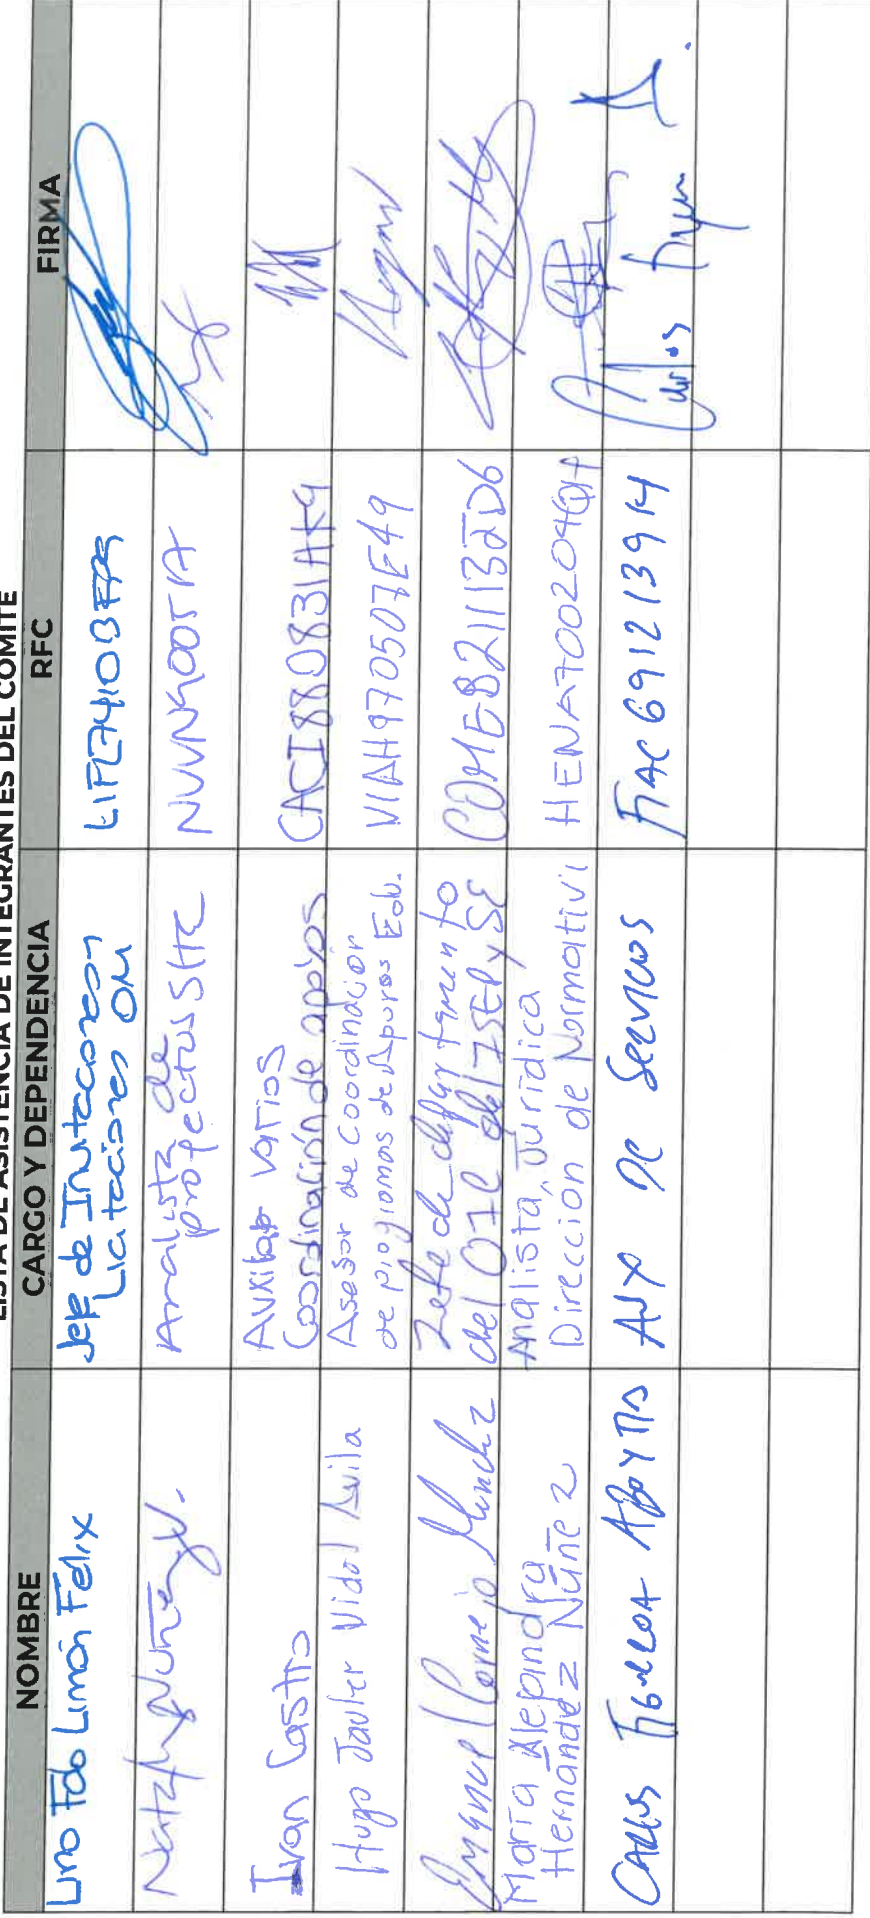 LISTA DE ASISTENCIA DE INTEGRANTES DEL COMITÉ
NOMBRE CARGO Y DEPENDENCIA RFC FIRMA
Lino Fdo Limón Felix Jefe de Invitaciones y
Licitaciones OM
Analista de
proyectos SHC
Ivan Castro Auxiliar varios
Coordinación de apoios CACI880831AK9
Hugo Javier Vidal Avila Asesor de Coordinación
de programas de Apoyos Edu. VIAH970507E49
Emanuel Cornejo Mendez Jefe de departamento
del OIC del ISEP y SE COME821113
María Alejandra
Hernández Núñez Analista Jurídica
Dirección de Normativi HENA700204
Carlos Figueroa Aux de Servicios FIAC691213914
Carlos